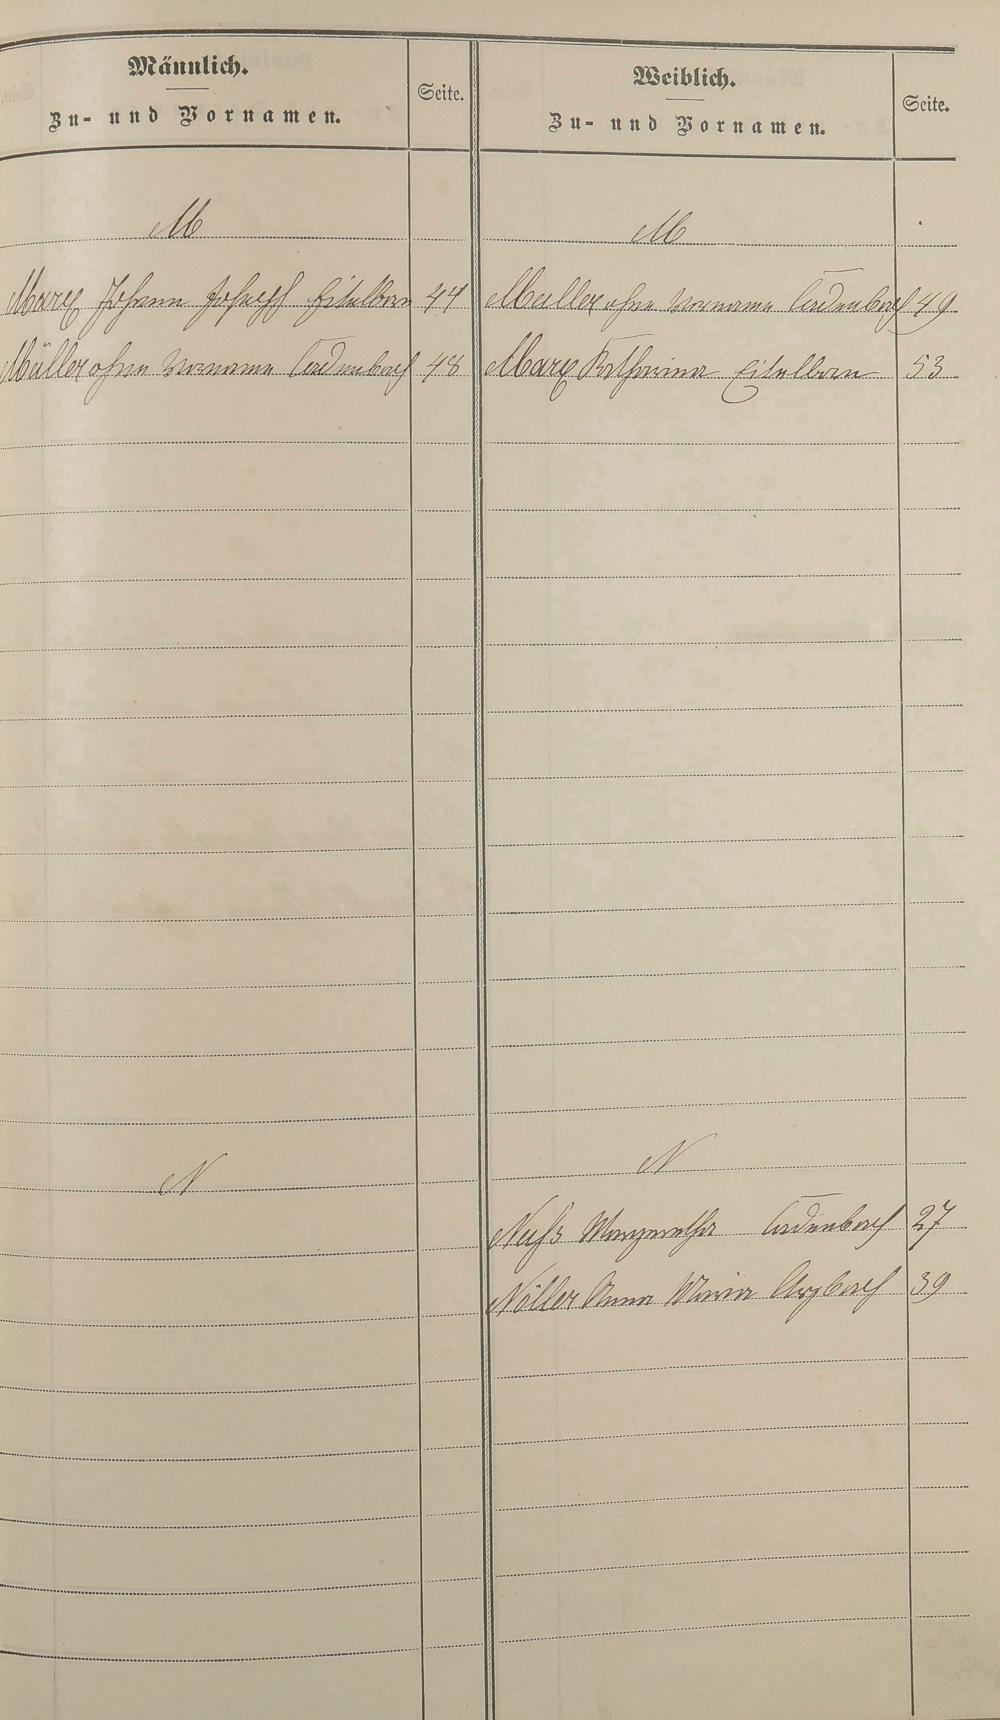 Männlich.
Zu- und Vornamen.
Seite.
M
Marx Johann Joseph Eitelborn 44
Müller ohne Vorname Cadenbach 48
N
Weiblich.
Zu- und Vornamen.
Seite.
M
Müller ohne Vorname Cadenbach 49
Marx Katharina Eitelborn 53
N
Nuß Margaretha Cadenbach 27
Nöller Anna Maria Arzbach 39